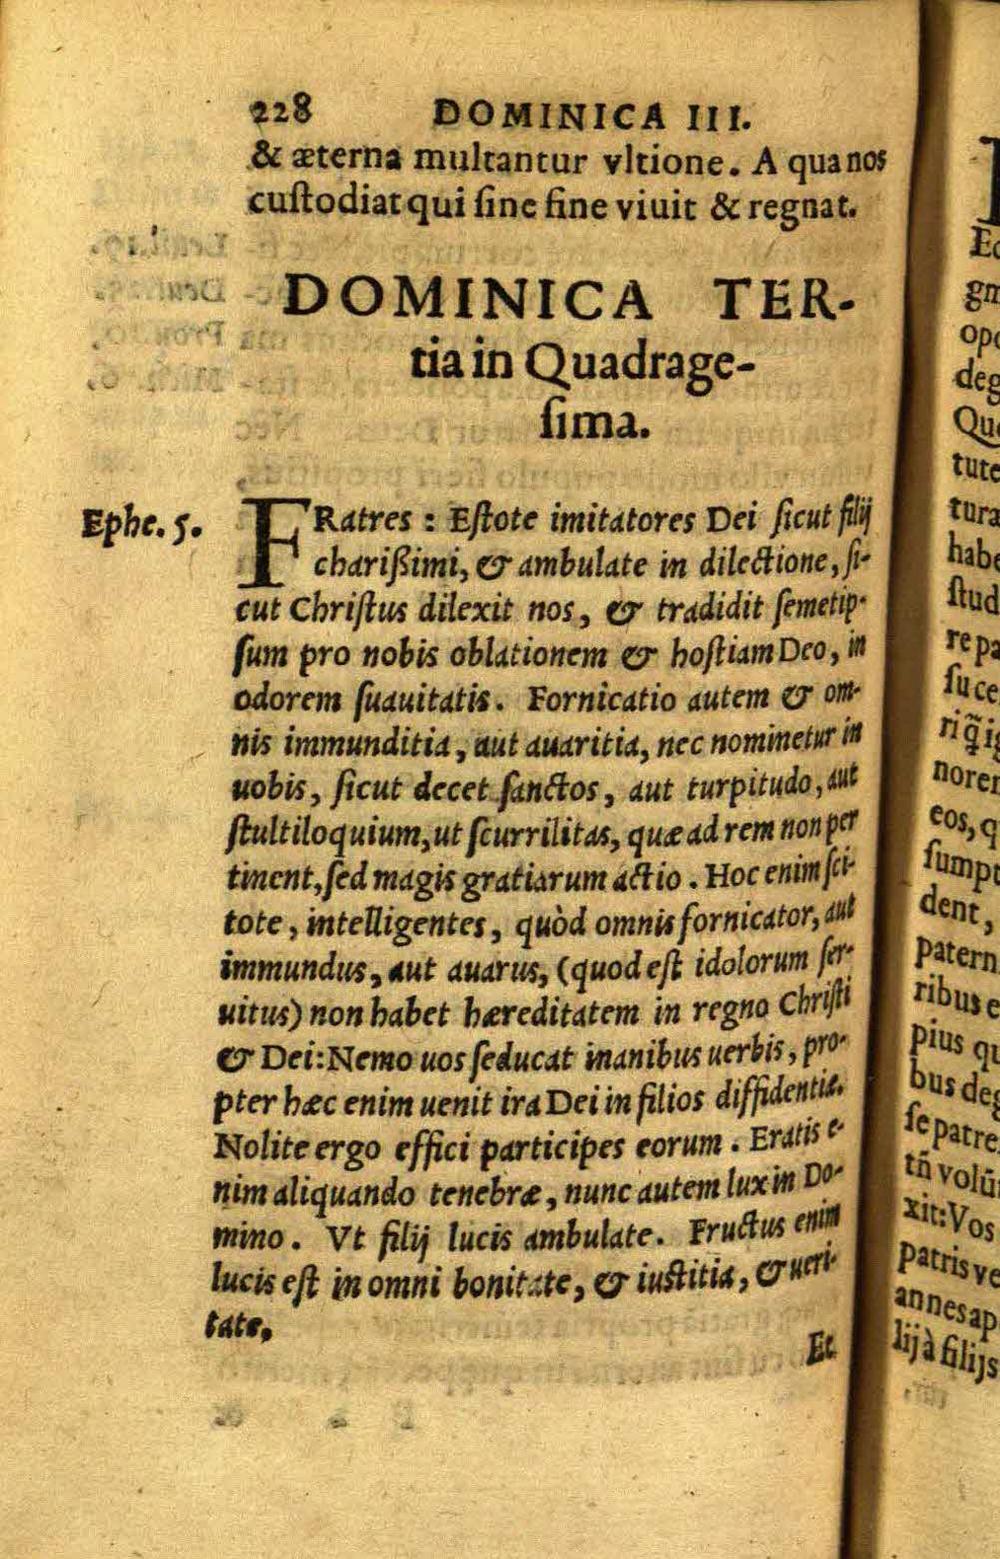 228 DOMINICA III.
& æterna mulctantur vltione. A qua nos
custodiat qui sine fine viuit & regnat.
DOMINICA TER-
tia in Quadrage-
sima.
Ephe. 5.
FRatres : Estote imitatores Dei sicut filij
charißimi, & ambulate in dilectione, si-
cut Christus dilexit nos, & tradidit semetip-
sum pro nobis oblationem & hostiam Deo, in
odorem suauitatis. Fornicatio autem & om-
nis immunditia, aut auaritia, nec nominetur in
uobis, sicut decet sanctos, aut turpitudo, aut
stultiloquium, ut scurrilitas, quæ ad rem non per
tinent, sed magis gratiarum actio. Hoc enim sci-
tote, intelligentes, quòd omnis fornicator, aut
immundus, aut auarus, (quod est idolorum ser-
uitus) non habet hæreditatem in regno Christi
& Dei: Nemo uos seducat inanibus uerbis, pro-
pter hæc enim uenit ira Dei in filios diffidentiæ.
Nolite ergo effici participes eorum. Eratis e-
nim aliquando tenebræ, nunc autem lux in Do-
mino. Vt filij lucis ambulate. Fructus enim
lucis est in omni bonitate, & iustitia, & ueri-
tate,
Et